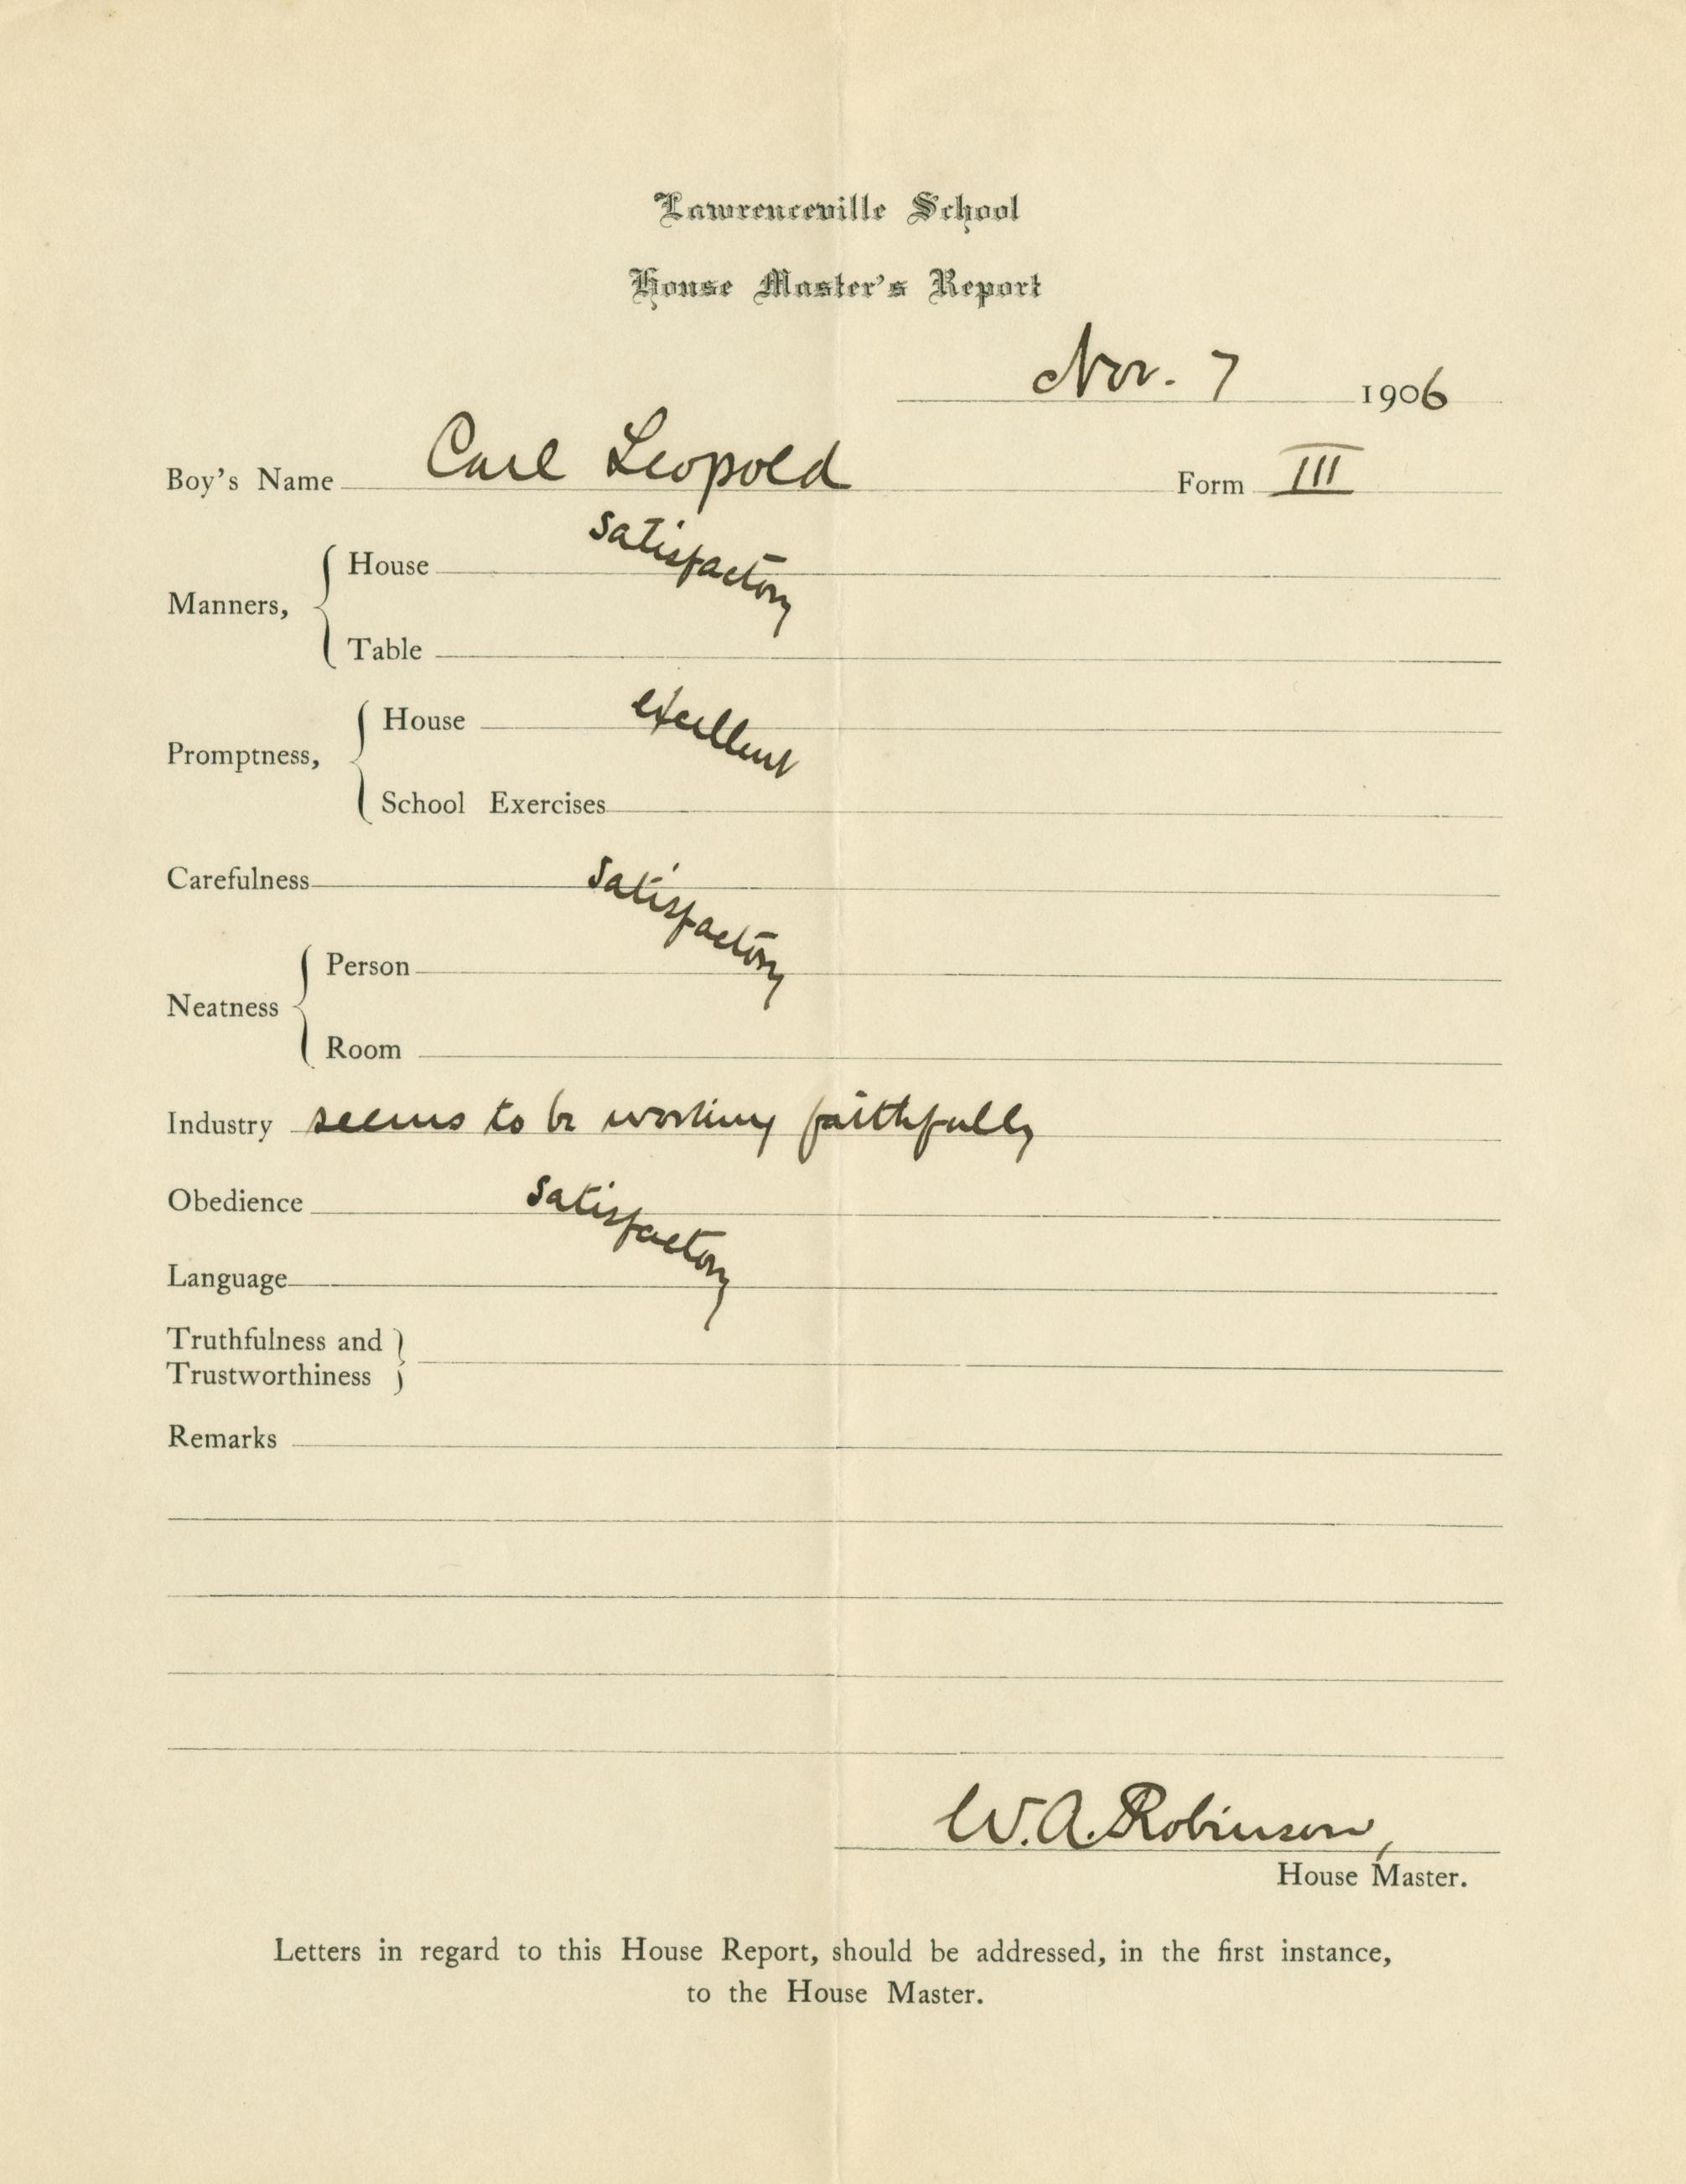 Lawrenceville School
House Master's Report
Nov. 7 1906
Boy's Name Carl Leopold Form III
satisfactory
Manners, House
Table
Promptness, House excellent
School Exercises
Carefulness satisfactory
Neatness Person
Room
Industry seems to be working faithfully
Obedience satisfactory
Language
Truthfulness and
Trustworthiness
Remarks
W. A. Robinson,
House Master.
Letters in regard to this House Report, should be addressed, in the first instance,
to the House Master.